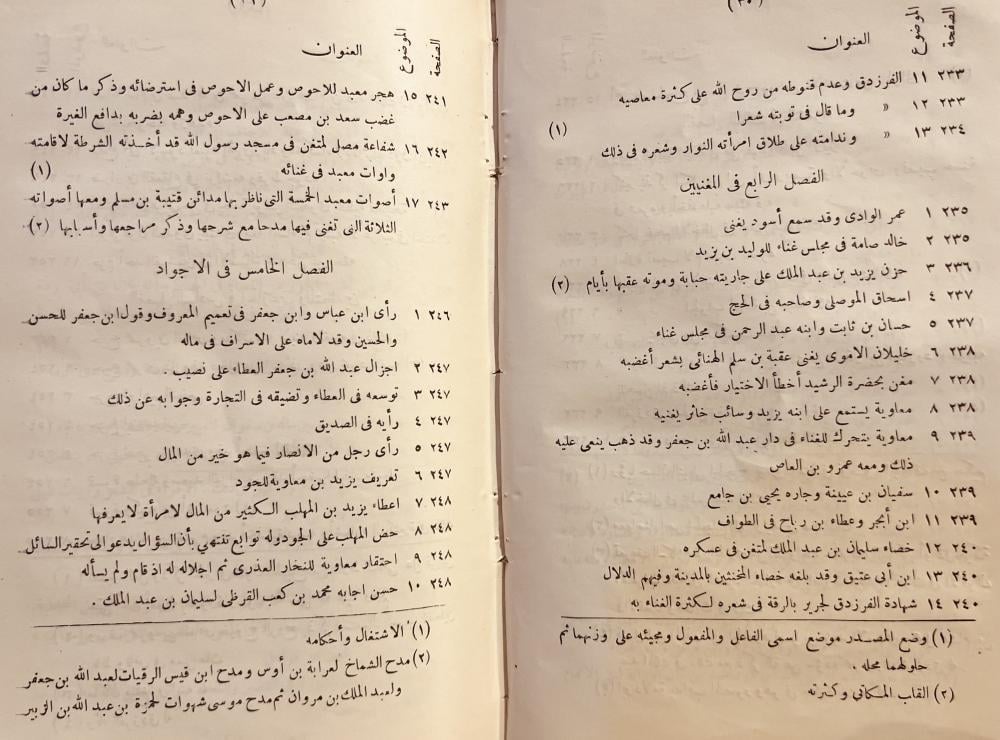 (٣٥)
العنوان
الموضوع
الصفحة
٢٣٣ ١١ الفرزدق وعدم قنوطه من روح الله على كثرة معاصيه
٢٣٣ ١٢ « وما قال فى توبته شعرا
٢٣٤ ١٣ « وندامته على طلاق امرأته النوار وشعره فى ذلك (١)
الفصل الرابع فى المغنيين
٢٣٥ ١ عمر الوادى وقد سمع أسود يغنى
٢٣٥ ٢ خالد صامة فى مجلس غناء للوليد بن يزيد
٢٣٦ ٣ حزن يزيد بن عبد الملك على جاريته حبابة وموته عقبها بأيام (٢)
٢٣٧ ٤ اسحاق الموصلى وصاحبه فى الحج
٢٣٧ ٥ حسان بن ثابت وابنه عبد الرحمن فى مجلس غناء
٢٣٨ ٦ خليلان الاموى يغنى عقبة بن سلم الهنائى بشعر أغضبه
٢٣٨ ٧ مغن بحضرة الرشيد أخطأ الاختيار فأغضبه
٢٣٨ ٨ معاوية يستمع على ابنه يزيد وسائب خاثر يغنيه
٢٣٩ ٩ معاوية يتحرك للغناء فى دار عبد الله بن جعفر وقد ذهب ينعى عليه
ذلك ومعه عمرو بن العاص
٢٣٩ ١٠ سفيان بن عيينة وجاره يحيى بن جامع
٢٣٩ ١١ ابن أبجر وعطاء بن رباح فى الطواف
٢٤٠ ١٢ خصاء سليمان بن عبد الملك لمتغن فى عسكره
٢٤٠ ١٣ ابن أبى عتيق وقد بلغه خصاء المخنثين بالمدينة وفيهم الدلال
٢٤٠ ١٤ شهادة الفرزدق لجرير بالرقة فى شعره لكثرة الغناء به
(١) وضع المصدر موضع اسمى الفاعل والمفعول ومجيئه على وزنهما ثم
حلولهما محله .
(٢) القاب المكاتي وكثرته
العنوان
الموضوع
الصفحة
٢٤١ ١٥ هجر معبد للاحوص وعمل الاحوص فى استرضائه وذكر ما كان من
غضب سعد بن مصعب على الاحوص وهمه بضربه بدافع الغيرة
٢٤٢ ١٦ شفاعة مصل لمتغن فى مسجد رسول الله قد أخذته الشرطة لاقامته
واوات معبد فى غنائه (١)
٢٤٣ ١٧ أصوات معبد الخمسة التى ناظر بها مدائن قتيبة بن مسلم ومعها أصواته
الثلاثة التى تغنى فيها مدحا مع شرحها وذكر مراجعها وأسبابها (٢)
الفصل الخامس فى الاجواد
٢٤٦ ١ رأى ابن عباس وابن جعفر فى تعميم المعروف وقول ابن جعفر للحسن
والحسين وقد لاماه على الاسراف فى ماله
٢٤٧ ٢ اجزال عبد الله بن جعفر العطاء على نصيب .
٢٤٧ ٣ توسعه فى العطاء وتضيقه فى التجارة وجوابه عن ذلك
٢٤٧ ٤ رأيه فى الصديق
٢٤٧ ٥ رأى رجل من الانصار فيما هو خير من المال
٢٤٧ ٦ تعريف يزيد بن معاوية للجود
٢٤٨ ٧ اعطاء يزيد بن المهلب الكثير من المال لامرأة لا يعرفها
٢٤٨ ٨ حض المهلب على الجود وله توابع تفتهي بأن السؤال يدعو الى تحقير السائل
٢٤٨ ٩ احتقار معاوية للنخار العذرى ثم اجلاله له اذ قام ولم يسأله
٢٤٨ ١٠ حسن اجابه محمد بن كعب القرظى لسليمان بن عبد الملك .
(١) الاشتغال وأحكامه
(٢) مدح الشماخ لعرابة بن أوس ومدح ابن قيس الرقيات لعبد الله بن جعفر
ولعبد الملك بن مروان ثم مدح موسى شهوات لحمزة بن عبد الله بن الزبير